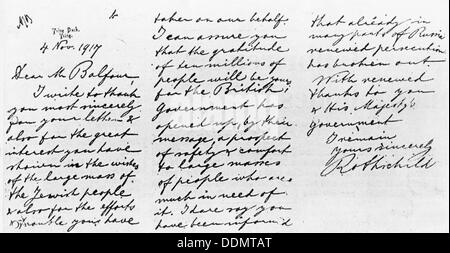 Tring Park,
Tring.
4 Nov. 1917
Dear Mr Balfour,
I write to thank
you most sincerely
for your letter &
also for the great
interest you have
shown in the wishes
of the large mass of
the Jewish people
& also for the efforts
& trouble you have
taken on our behalf.
I can assure you
that the gratitude
of ten millions of
people will be yours
for the British
Government has
opened up, by their
message, a prospect
of safety & comfort
to large masses
of people who are
much in need of
it. I dare say you
have been inform'd
that already in
many parts of Russia
renewed persecution
has broken out.
With renewed
thanks to you
& His Majesty's
government
I remain
yours sincerely
Rothschild
alamy
Image ID: DDMTAT
www.alamy.com